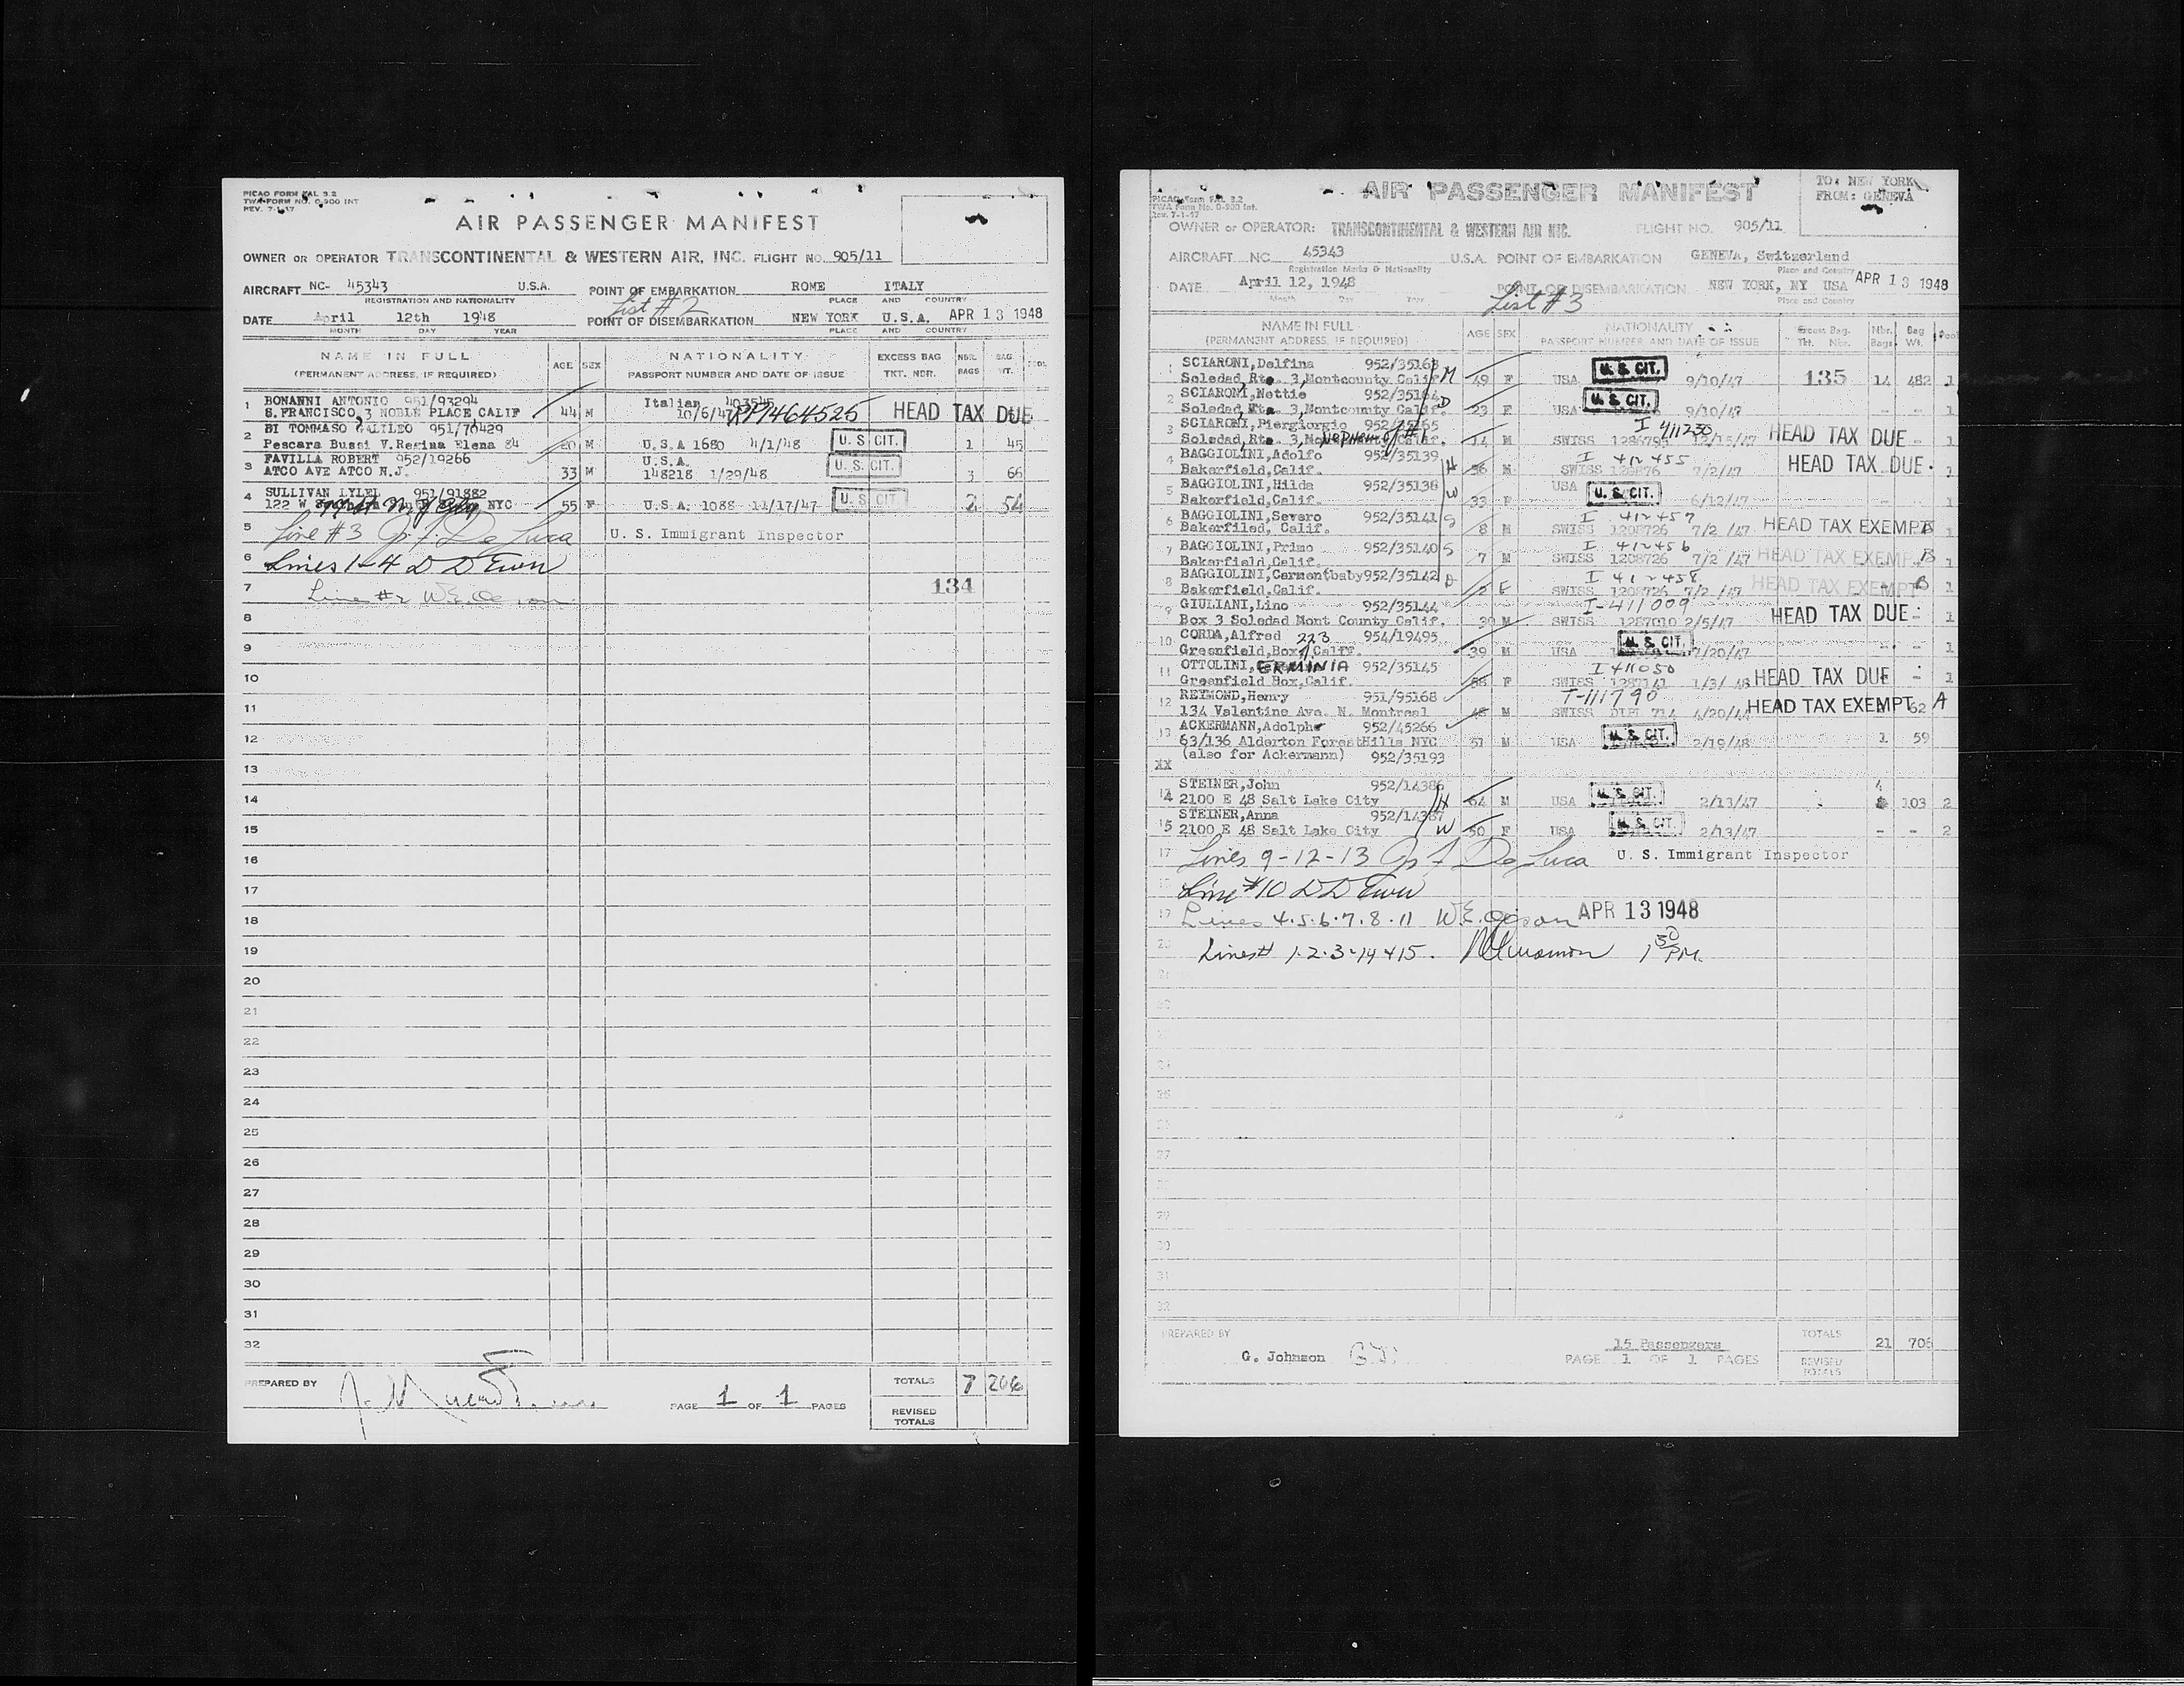 PICAO FORM FAL 3.2
TWA FORM NO. O-900 INT
REV. 7-1-47
AIR PASSENGER MANIFEST
OWNER OR OPERATOR TRANSCONTINENTAL & WESTERN AIR, INC. FLIGHT NO. 905/11
AIRCRAFT NC- 45343 U.S.A. POINT OF EMBARKATION ROME ITALY
REGISTRATION AND NATIONALITY PLACE AND COUNTRY
List #2
DATE April 12th 1948 POINT OF DISEMBARKATION NEW YORK U.S.A. APR 13 1948
MONTH DAY YEAR PLACE AND COUNTRY
NAME IN FULL AGE SEX NATIONALITY EXCESS BAG NBR. BAG
(PERMANENT ADDRESS, IF REQUIRED) PASSPORT NUMBER AND DATE OF ISSUE TKT. NBR. BAGS WT.
1 BONANNI ANTONIO 951/93294 Italian 403545
S.FRANCISCO,3 NOBLE PLACE CALIF 44 M 10/6/47 HEAD TAX DUE
2 DI TOMMASO GALILEO 951/70429
Pescara Bussi V.Regina Elena 84 M U.S.A 1680 4/1/48 U.S. CIT. 1 45
3 FAVILLA ROBERT 952/19266 U.S.A.
ATCO AVE ATCO N.J. 33 M 148218 1/29/48 U.S. CIT. 3 66
4 SULLIVAN LYLEL 951/91882
122 W NYC 55 F U.S.A. 1088 11/17/47 U.S. CIT. 2 54
5 Line #3 De Luca U. S. Immigrant Inspector
6 Lines 1-4 D D Ewen
7 Line #2 134
8
9
10
11
12
13
14
15
16
17
18
19
20
21
22
23
24
25
26
27
28
29
30
31
32
PREPARED BY PAGE 1 OF 1 PAGES TOTALS 7 206
REVISED TOTALS
PICAO Form FAL 3.2
TWA Form No. O-900 Int.
Rev. 7-1-47
AIR PASSENGER MANIFEST
TO: NEW YORK
FROM: GENEVA
OWNER or OPERATOR: TRANSCONTINENTAL & WESTERN AIR INC. FLIGHT NO. 905/11
AIRCRAFT NC 45343 U.S.A. POINT OF EMBARKATION GENEVA, Switzerland
Registration Marks & Nationality Place and Country
DATE April 12, 1948 POINT OF DISEMBARKATION NEW YORK, NY USA APR 13 1948
Month Day Year Place and Country
List #3
NAME IN FULL AGE SEX NATIONALITY Excess Bag. Nbr. Bag
(PERMANENT ADDRESS, IF REQUIRED) PASSPORT NUMBER AND DATE OF ISSUE Tkt. Nbr. Bags Wt.
1 SCIARONI,Delfina 952/35163
Soledad,Rte. 3,Montcounty Calif. M 49 F USA U.S. CIT. 9/10/47 135 14 482 1
2 SCIARONI,Nettie 952/35164
Soledad,Rte. 3,Montcounty Calif. D 23 F USA U.S. CIT. 9/10/47 - - 1
3 SCIARONI,Piergiorgio 952/35165 I 411230
Soledad,Rte. 3, Nephew of #1 Calif. 14 M SWISS 12/15/47 HEAD TAX DUE - 1
4 BAGGIOLINI,Adolfo 952/35139 I 412455
Bakerfield,Calif. H 36 M SWISS 7/2/47 HEAD TAX DUE 1
5 BAGGIOLINI,Hilda 952/35138 USA
Bakerfield,Calif. W 33 F U.S. CIT. 6/12/47 - - 1
6 BAGGIOLINI,Severo 952/35141 I 412457
Bakerfiled, Calif. S 8 M SWISS 1208726 7/2 /47 HEAD TAX EXEMPT B 1
7 BAGGIOLINI,Primo 952/35140 I 412456
Bakerfield,Calif. S 7 M SWISS 1208726 7/2 /47 HEAD TAX EXEMPT B 1
8 BAGGIOLINI,Carmentbaby 952/35142 I 412458
Bakerfield,Calif. D 2 F SWISS 1208726 7/2 /47 HEAD TAX EXEMPT B 1
9 GIULIANI,Lino 952/35144 I-411009
Box 3 Soledad Mont County Calif. 30 M SWISS 1287010 2/5/47 HEAD TAX DUE - 1
10 CORDA,Alfred 223 954/19495
Greenfield,Box,Calif. 39 M USA U.S. CIT. 7/20/47 - - 1
11 OTTOLINI, ERMINIA 952/35145 I 411050
Greenfield Box,Calif. F SWISS 1287141 1/3/ 48 HEAD TAX DUE - 1
12 REYMOND,Henry 951/95168 I-111790
134 Valentine Ave. N. Montreal 48 M SWISS DIPL 714 4/20/44 HEAD TAX EXEMPT 62 A
13 ACKERMANN,Adolphe 952/45266
63/136 Alderton ForestHills NYC 51 M USA U.S. CIT. 2/19/48 1 59
XX (also for Ackermann) 952/35193
14 STEINER,John 952/14386
2100 E 48 Salt Lake City H 64 M USA U.S. CIT. 2/13/47 4 103 2
15 STEINER,Anna 952/14387
2100 E 48 Salt Lake City W 50 F USA U.S. CIT. 2/13/47 - - 2
17 Lines 9-12-13 De Luca U. S. Immigrant Inspector
Line #10 D D Ewen
Lines 4.5.6.7.8.11 APR 13 1948
Lines# 1.2.3.14 + 15. 1 30 PM.
PREPARED BY G. Johnson GJ 15 Passengers TOTALS 21 706
PAGE 1 OF 1 PAGES REVISED TOTALS